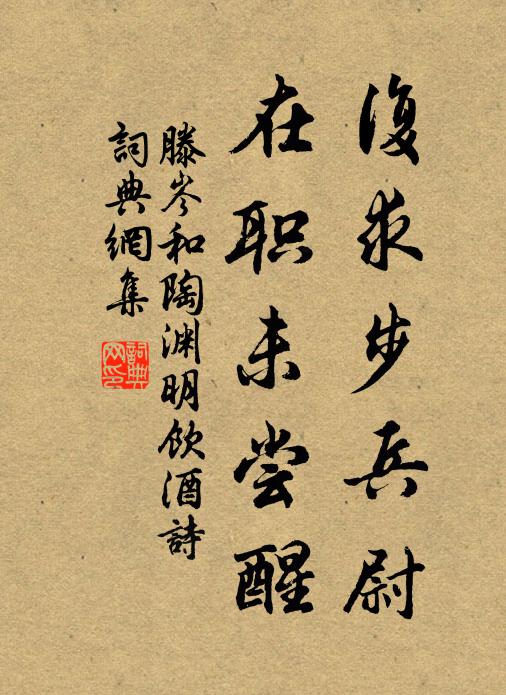 復求步兵尉
在职未尝醒
滕岑和陶渊明飲酒詩
詞典網集
詞典网印